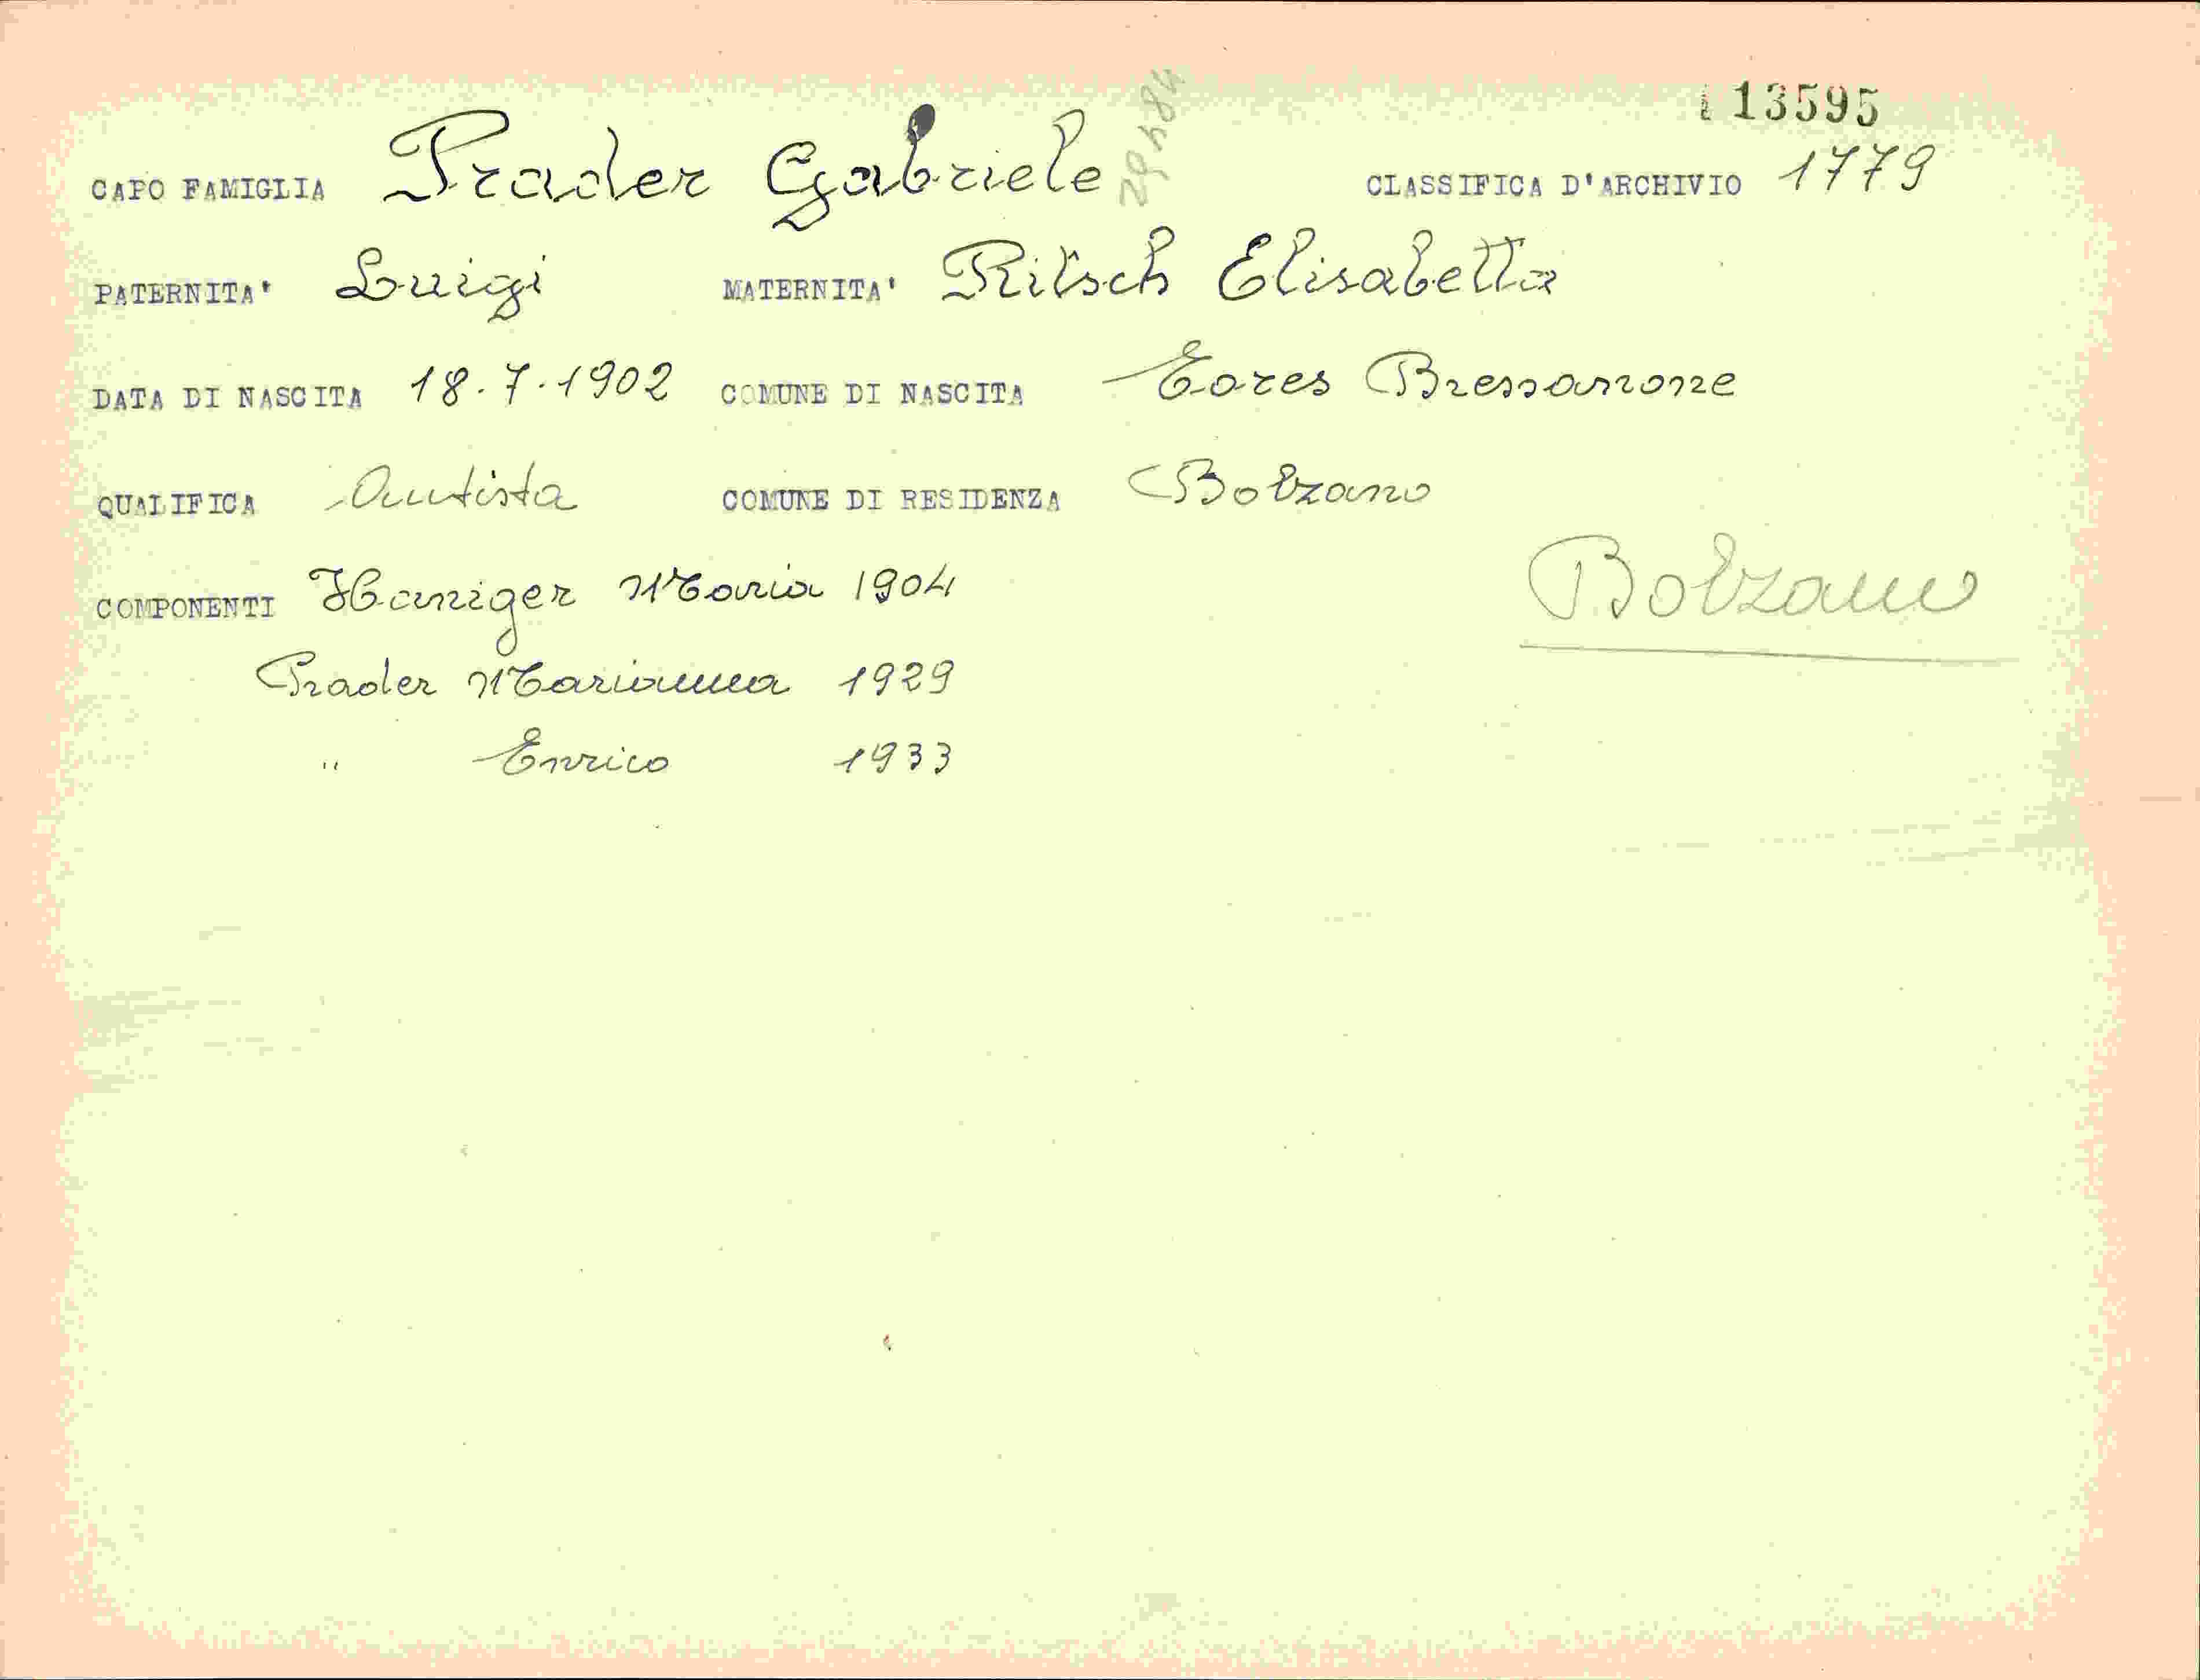 13595
CAPO FAMIGLIA Prader Gabriele CLASSIFICA D'ARCHIVIO 1779
PATERNITA' Luigi MATERNITA' Ritsch Elisabetta
DATA DI NASCITA 18.7.1902 COMUNE DI NASCITA Eores Bressanone
QUALIFICA Autista COMUNE DI RESIDENZA Bolzano
COMPONENTI Haniger Maria 1904
Bolzano
Prader Marianna 1929
" Enrico 1933